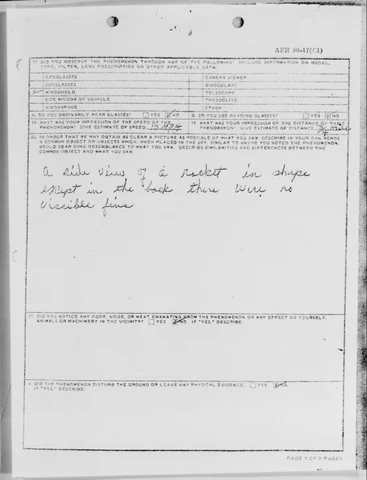 AFR 80-17(C1)
17. DID YOU OBSERVE THE PHENOMENON THROUGH ANY OF THE FOLLOWING? INCLUDE INFORMATION ON MODEL,
TYPE, FILTER, LENS PRESCRIPTION OR OTHER APPLICABLE DATA.
EYEGLASSES CAMERA VIEWER
SUNGLASSES BINOCULARS
WINDSHIELD TELESCOPE
SIDE WINDOW OF VEHICLE THEODOLITE
WINDOWPANE OTHER
A. DO YOU ORDINARILY WEAR GLASSES? YES NO B. DO YOU USE READING GLASSES? YES NO
WHAT WAS YOUR IMPRESSION OF THE SPEED OF THE WHAT WAS YOUR IMPRESSION OF THE DISTANCE OF THE
PHENOMENON? GIVE ESTIMATE OF SPEED PHENOMENON? GIVE ESTIMATE OF DISTANCE
IN ORDER THAT WE MAY OBTAIN AS CLEAR A PICTURE AS POSSIBLE OF WHAT YOU SAW, DESCRIBE IN YOUR OWN WORDS
A COMMON OBJECT OR OBJECTS WHICH, WHEN PLACED IN THE SKY, SIMILAR TO WHERE YOU NOTED THE PHENOMENON,
WOULD BEAR SOME RESEMBLANCE TO WHAT YOU SAW. DESCRIBE SIMILARITIES AND DIFFERENCES BETWEEN THE
COMMON OBJECT AND WHAT YOU SAW.
A side view of a rocket in shape
exept in the back there were no
viscible fins
DID YOU NOTICE ANY ODOR, NOISE, OR HEAT EMANATING FROM THE PHENOMENON OR ANY EFFECT ON YOURSELF,
ANIMALS OR MACHINERY IN THE VICINITY? YES NO IF "YES," DESCRIBE.
DID THE PHENOMENON DISTURB THE GROUND OR LEAVE ANY PHYSICAL EVIDENCE? YES NO
IF "YES," DESCRIBE